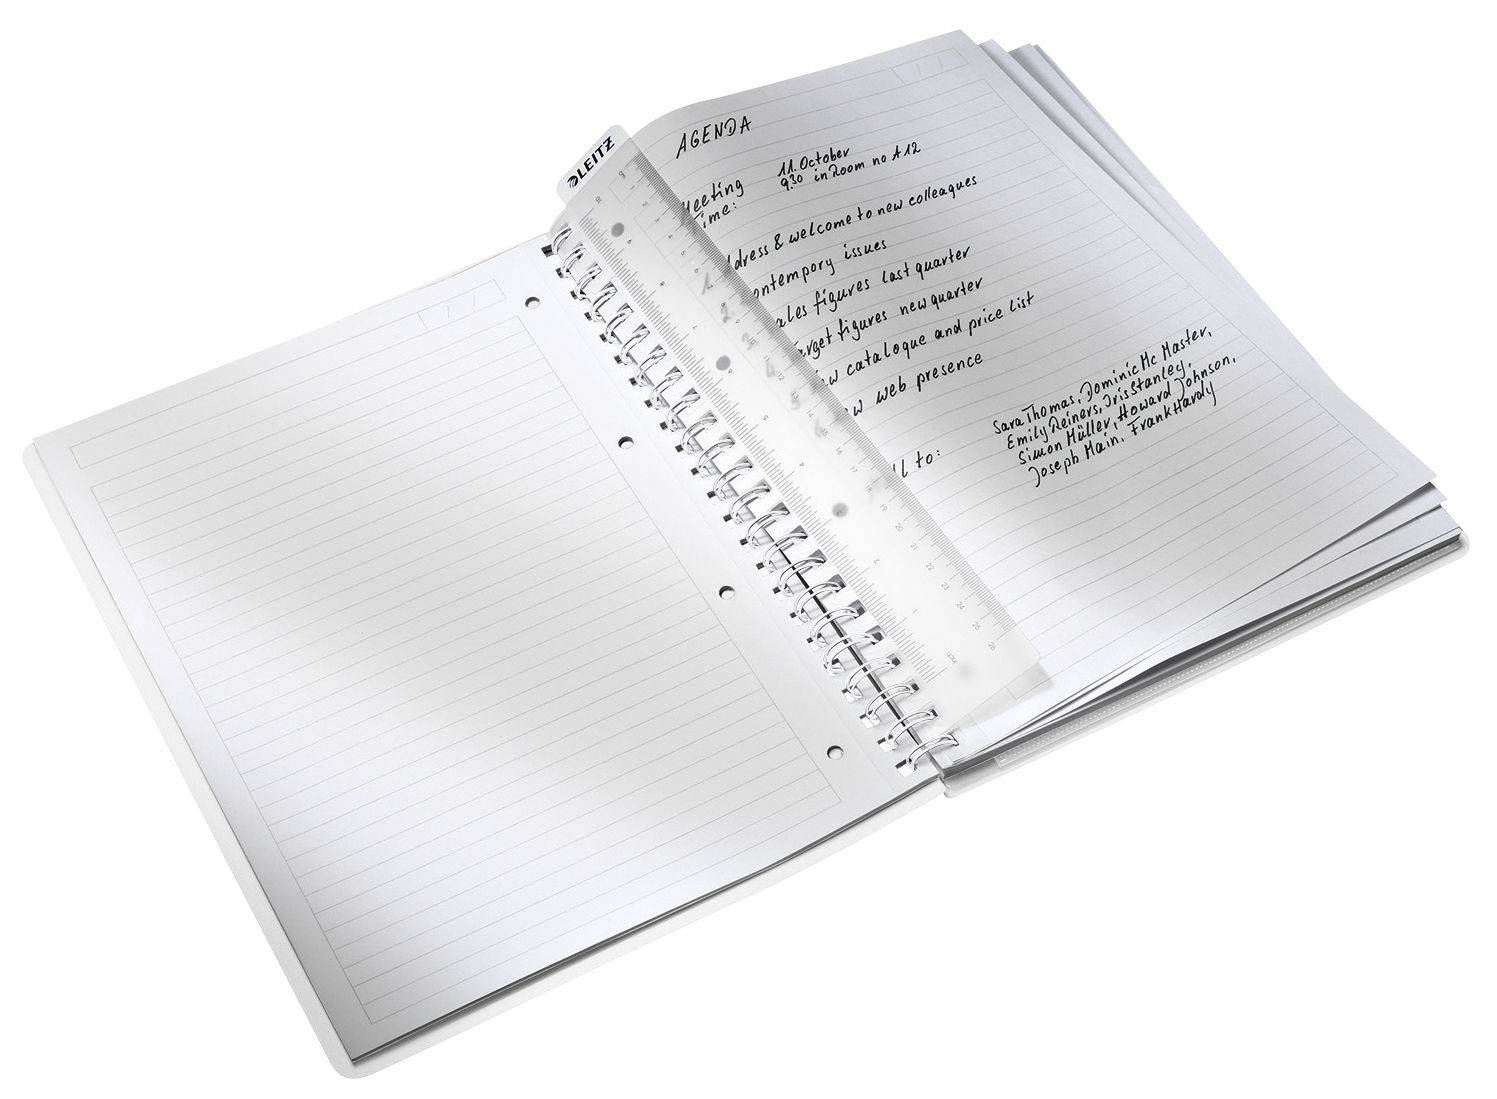 LEITZ
AGENDA
Meeting 11. October
Time: 9.30 in Room no A 12
1. Address & welcome to new colleagues
2. Contempory issues
3. Sales figures last quarter
4. Target figures new quarter
5. New catalogue and price list
6. New web presence
to:
Sara Thomas, Dominic Mc Master,
Emily Reiners, Iris Stanley,
Simon Müller, Howard Johnson,
Joseph Main, Frank Hardy